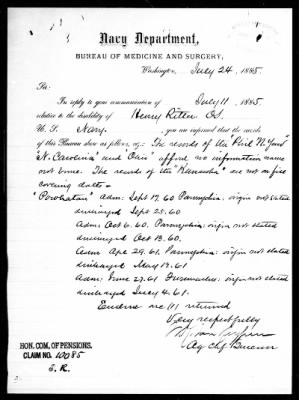 Navy Department,
BUREAU OF MEDICINE AND SURGERY,
Washington, July 24, 1885
Sir:
In reply to your communication of July 11, 1885
relative to the disability of Henry Ritter O.S.
U. S. Navy, you are informed that the records
of this Bureau show as follows, viz: The records of the "Phil N. Yard"
"N. Carolina" and "Ohio" afford no information name
not borne. The records of the are not on file
covering dates.
"Powhatan" Adm: Sept 17. 60 origin not stated
discharged Sept 25. 60
Adm: Oct 6. 60. origin not stated
discharged Oct 13. 60.
Adm: Apr 29. 61. origin not stated
discharged May 17. 61
Adm: June 27. 61 Furunculus: origin not stated
discharged July 4. 61.
returned
Very respectfully
Actg Chf Bureau
HON. COM. OF PENSIONS.
CLAIM NO. 10085
S. R.